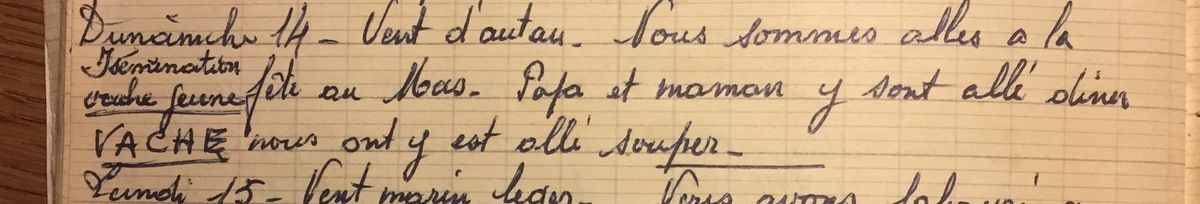 Dimanche 14 - Vent d'autan. Nous sommes alles a la
Isémination
vache jeune fête au Mas. Papa et maman y sont allé diner
VACHE nous ont y est allé souper -
Lundi 15 - Vent marin leger - Nous avons